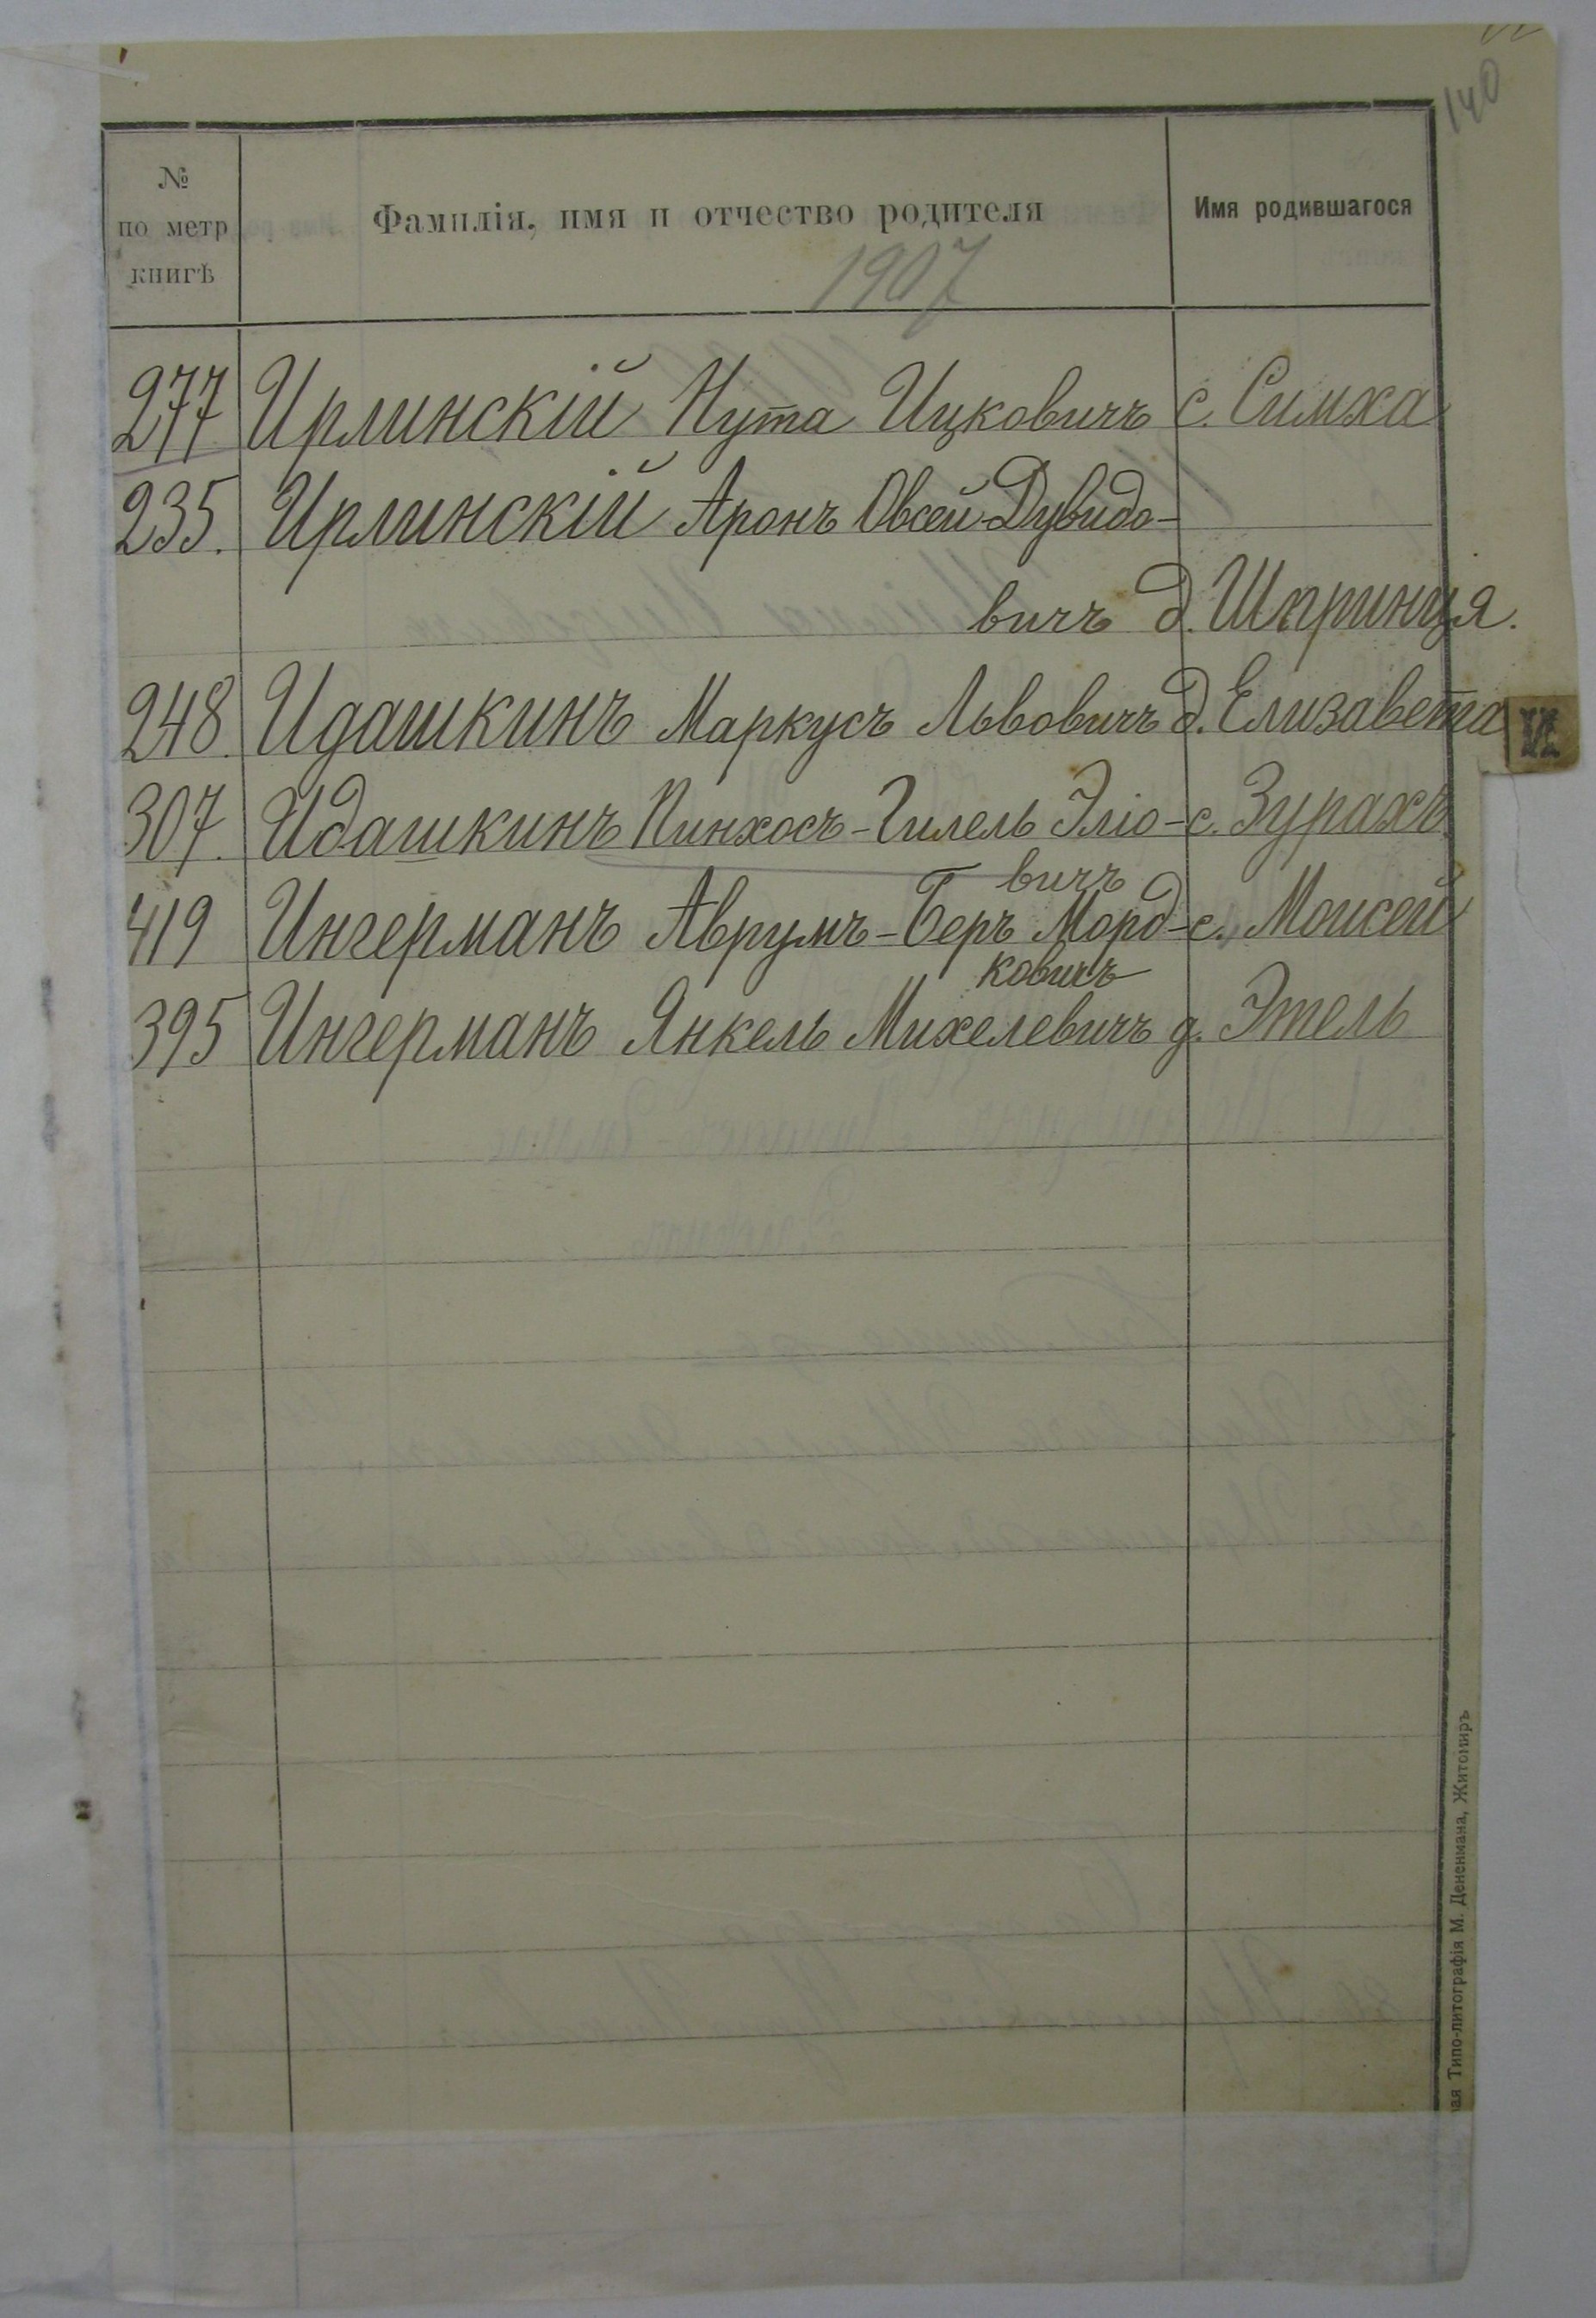 140
№
по метр
книгѣ
Фамилія, имя и отчество родителя
Имя родившагося
1907
277 Ирлинскій Нута Ицковичъ с. Симха
235. Ирлинскій Аронъ Овсей-Дувидо-
вичъ д. Шпринця.
248 Идашкинъ Маркусъ Львовичъ д. Елизавета
И
307. Идашкинъ Пинхосъ-Гилель Эліо- с. Зурахъ
вичъ
419 Ингерманъ Аврумъ-Беръ Морд- с. Моисей
ковичъ
395 Ингерманъ Янкель Михелевичъ д. Этель
Типо-литографія М. Дененмана, Житомиръ